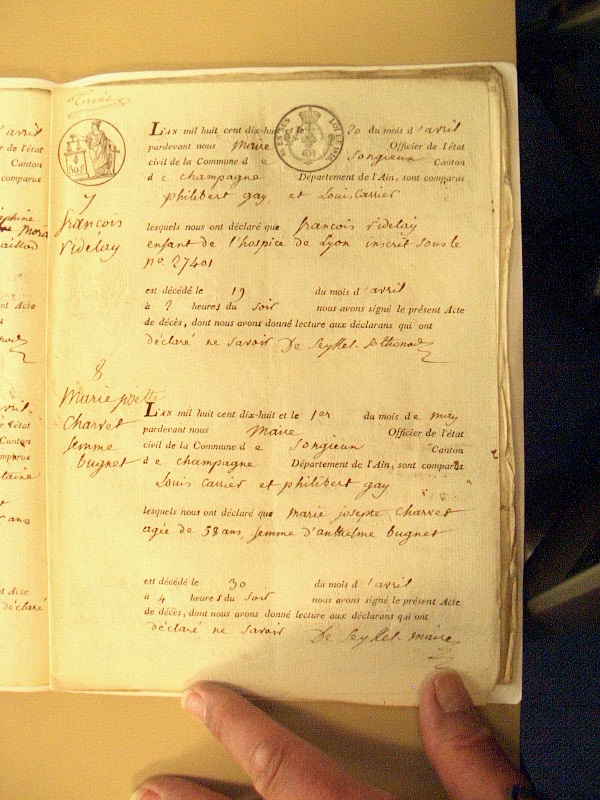 L'AN mil huit cent dix-huit le 20 du mois d'avril
pardevant nous Maire Officier de l'état
civil de la Commune d e Songieux Canton
d e champagne Département de l'Ain, sont comparus
philibert gay, et Louis Carrier
7
françois
Videlay
lesquels nous ont déclaré que françois Videlay
enfant de l'hospice de Lyon inscrit sous le
no. 27401
est décédé le 19 du mois d'avril
à 2 heures du Soir nous avons signé le présent Acte
de décès, dont nous avons donné lecture aux déclarans qui ont
déclaré ne Savoir De Seyssel
8
Marie
Charvet
femme
bugnet
L'AN mil huit cent dix-huit et le 1er du mois de may
pardevant nous Maire Officier de l'état
civil de la Commune d e Songieux Canton
d e champagne Département de l'Ain, sont comparus
Louis Carrier et philibert gay
lesquels nous ont déclaré que Marie josepte Charvet
agée de 58 ans, femme d'anthelme bugnet
est décédé le 30 du mois d'avril
à 4 heures du Soir nous avons signé le présent Acte
de décès, dont nous avons donné lecture aux déclarans qui ont
déclaré ne Savoir De Seyssel maire